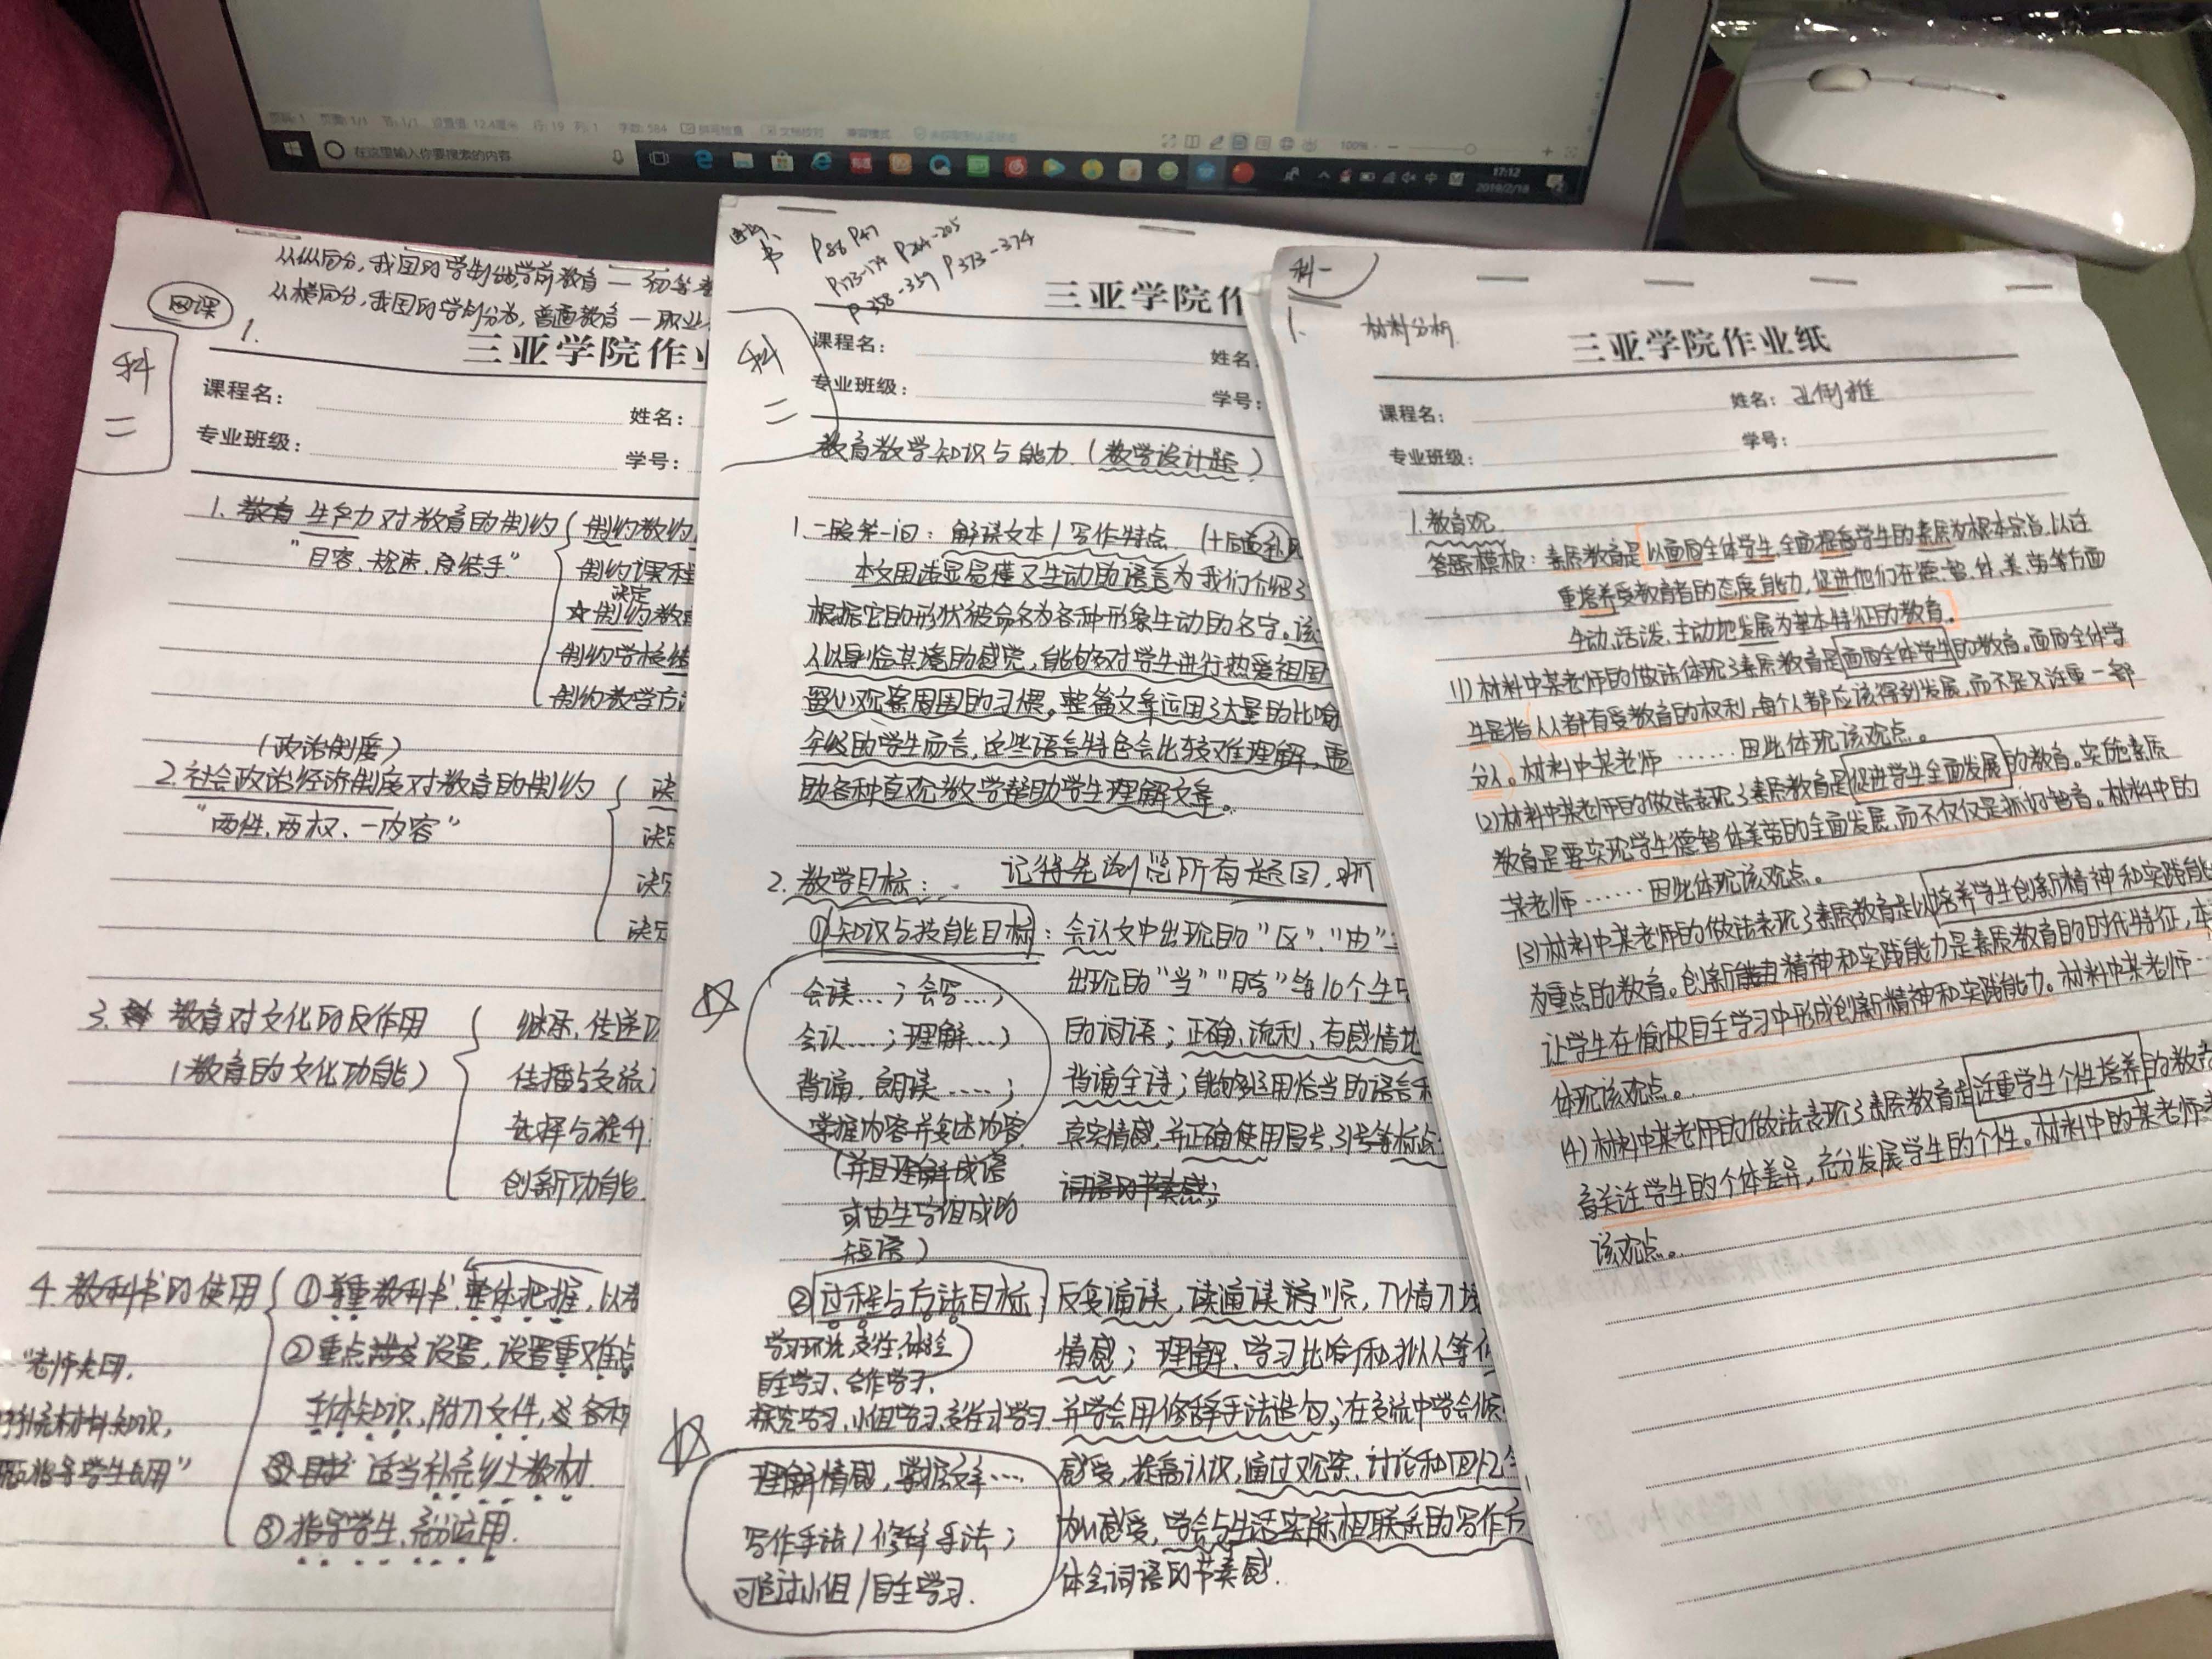 页面: 1/1 节: 1/1 设置值: 12.4厘米 行: 19 列: 1 字数: 584 拼写检查 文档校对 兼容模式
100%
在这里输入你要搜索的内容
17:12
2019/2/18
网课
科二
1.
从纵向分,我国的学制包学前教育 — 初等
从横向分,我国的学制分为,普通教育 — 职业
三亚学院作业
课程名:
姓名:
专业班级:
学号:
1. 教育 生产力对教育的制约
制约教
"目容、规速、良结手"
制约课程
决定
☆制约教
制约学校结
制约教学方
(政治制度)
2. 社会政治经济制度对教育的制约
决
"两性,两权、一内容"
决定
决定
决定
3. 教育对文化的反作用
(教育的文化功能)
继承,传递
传播与交流
选择与提升
创新功能
4. 教科书的使用
①尊重教科书,整体把握,以
②重点 设置,设置重难点
主体知识,附力文件,
适当补充乡土教材
③指导学生,充分运用.
科二
书
P86 P47
P173-174 P204-205
P358-359 P373-374
三亚学院作
课程名:
姓名:
专业班级:
学号:
教育教学知识与能力.(教学设计题)
1. 一般第一问: 解读文本/写作特点
本文用浅显易懂又生动的语言为我们介绍了
根据它的形状被命名为各种形象生动的名字。该
人以身临其境的感觉,能够对学生进行热爱祖国
留心观察周围的习惯。整篇文章运用了大量的比喻
年级的学生而言,这些语言特色会比较难理解,需
助各种直观教学帮助学生理解文章。
2. 教学目标:
记得先浏览所有题目,
①知识与技能目标: 会认文中出现的"区"、"由"
会读...; 会写...;
出现的"当""晾"等10个生字
会认...; 理解...;
的词语;正确、流利、有感情地
背诵、朗读......;
背诵全诗;能够运用恰当的语言和
掌握内容并复述内容.
真实情感,并正确使用冒号,引号等标点
(并且理解成语
词语的节奏感;
或由生字组成的
短语)
②过程与方法目标: 反复诵读,读通读顺,
学习环境,交往,体验
情感;理解、学习比喻和拟人等
自主学习、合作学习、
探究学习,小组学习,交往式学习. 并学会用修辞手法造句;在交流中学会倾
理解情感,掌握文章....
感受,提高认识,通过观察、讨论和回忆
写作手法/修辞手法;
感受,学会与生活实际相联系的写作方
可通过小组/自主学习.
体会词语的节奏感.
科一
1. 材料分析.
三亚学院作业纸
课程名:
姓名:
专业班级:
学号:
1. 教育观
答题模板: 素质教育是以面向全体学生,全面提高学生的素质为根本宗旨,以注
重培养受教育者的态度、能力,促进他们在德、智、体、美、劳等方面
生动、活泼、主动地发展为基本特征的教育。
(1)材料中某老师的做法体现了素质教育是面向全体学生的教育。面向全体学
生是指人人都有受教育的权利,每个人都应该得到发展,而不是只注重一部
分人。材料中某老师......因此体现该观点。
(2)材料中某老师的做法表现了素质教育是促进学生全面发展的教育。实施素质
教育是要实现学生德智体美劳的全面发展,而不仅仅是抓好智育。材料中的
某老师......因此体现该观点。
(3)材料中某老师的做法表现了素质教育是以培养学生创新精神和实践能
为重点的教育。创新精神和实践能力是素质教育的时代特征,
让学生在愉快自主学习中形成创新精神和实践能力。材料中某老师...
体现该观点。
(4)材料中某老师的做法表现了素质教育是注重学生个性培养的教
育关注学生的个体差异,充分发展学生的个性。材料中的某老师
该观点。